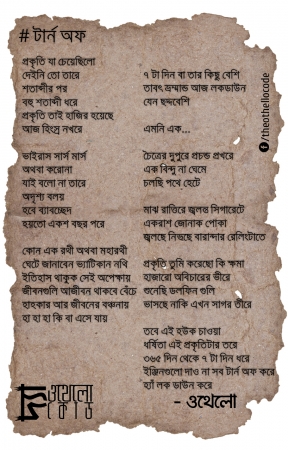 # টার্ন অফ
প্রকৃতি যা চেয়েছিলো
দেইনি তো তারে
শতাব্দীর পর
বহু শতাব্দী ধরে
প্রকৃতি তাই হাজির হয়েছে
আজ হিংস্র নখরে
ভাইরাস সার্স মার্স
অথবা করোনা
যাই বলো না তারে
অদৃশ্য বলয়
হবে ব্যাবচ্ছেদ
হয়তো একশ বছর পরে
কোন এক রথী অথবা মহারথী
ঘেটে জানাবেন ভ্যাটিকান নথি
ইতিহাস থাকুক সেই অপেক্ষায়
জীবনগুলি আজীবন থাকবে বেঁচে
হাহকার আর জীবনের বঞ্চনায়
হা হা হা কি বা এসে যায়
৭ টা দিন বা তার কিছু বেশি
তাবৎ ভ্রম্মান্ড আজ লকডাউন
যেন ছদ্মবেশী
এমনি এক...
চৈত্রের দুপুরে প্রচন্ড প্রখরে
এক বিন্দু না ঘেমে
চলছি পথে হেটে
মাঝ রাত্তিরে জ্বলন্ত সিগারেটে
একরাশ জোনাক পোকা
জ্বলছে নিভছে বারান্দার রেলিংটাতে
প্রকৃতি তুমি করেছো কি ক্ষমা
হাজারো অবিচারের ভীরে
শুনেছি ডলফিন গুলি
ভাসছে নাকি এখন সাগর তীরে
তবে এই হউক চাওয়া
ধর্ষিতা এই প্রকৃতিটার তরে
৩৬৫ দিন থেকে ৭ টা দিন ধরে
ইঞ্জিনগুলো দাও না সব টার্ন অফ করে
হ্যাঁ লক ডাউন করে
- ওথেলো
/theothellocode
ওথেলো
কোড